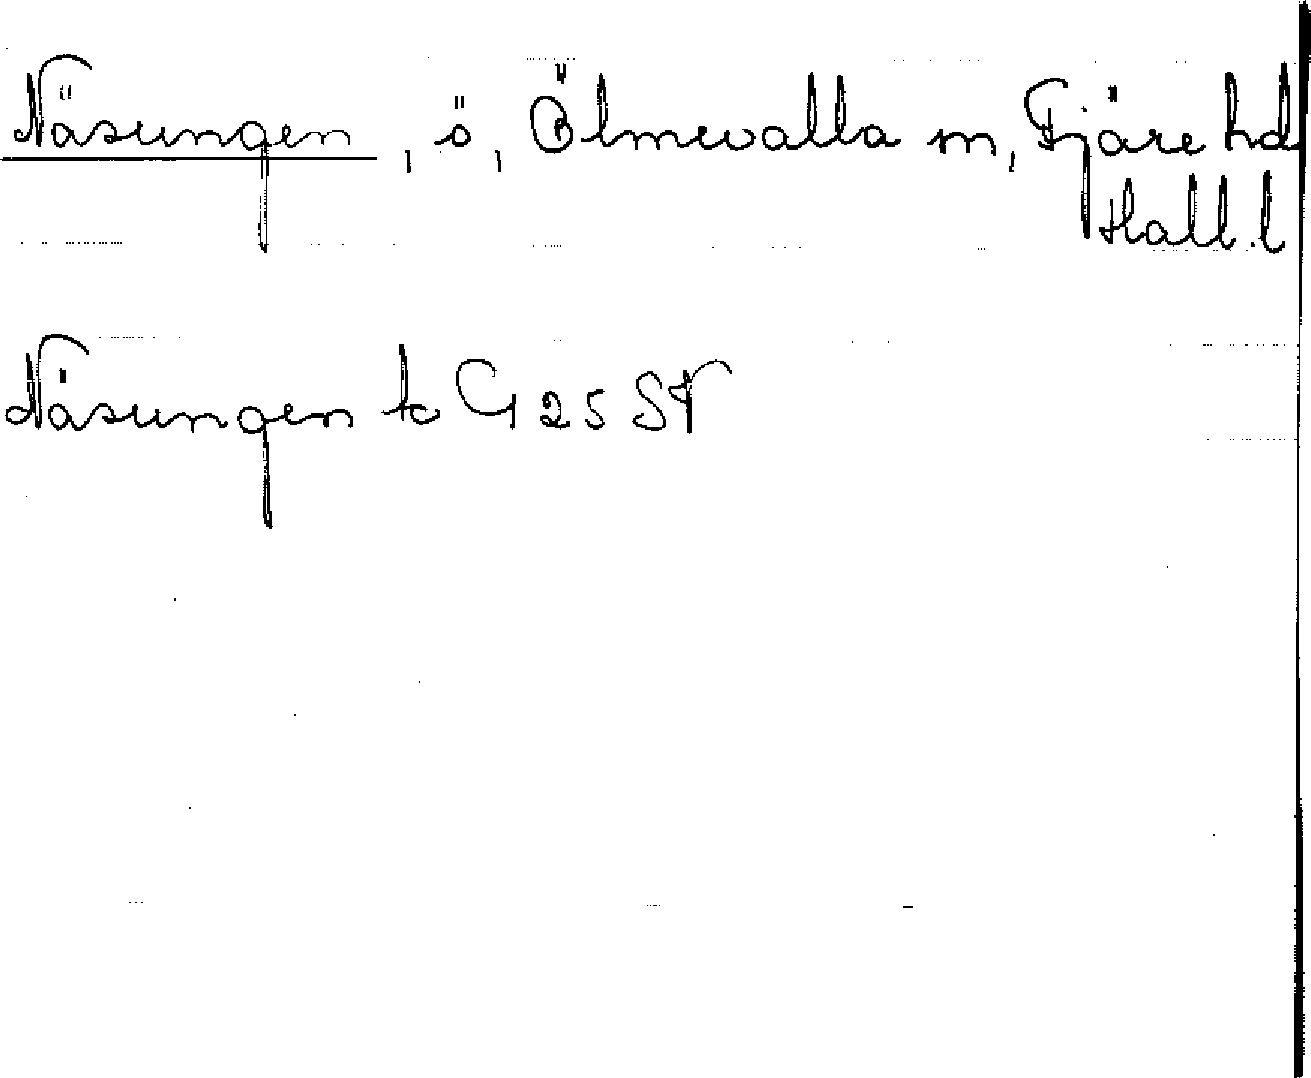 Näsungen, ö, Ölmevalla sn, Fjäre hd
Hall. l
Näsungen tc G 25 SV